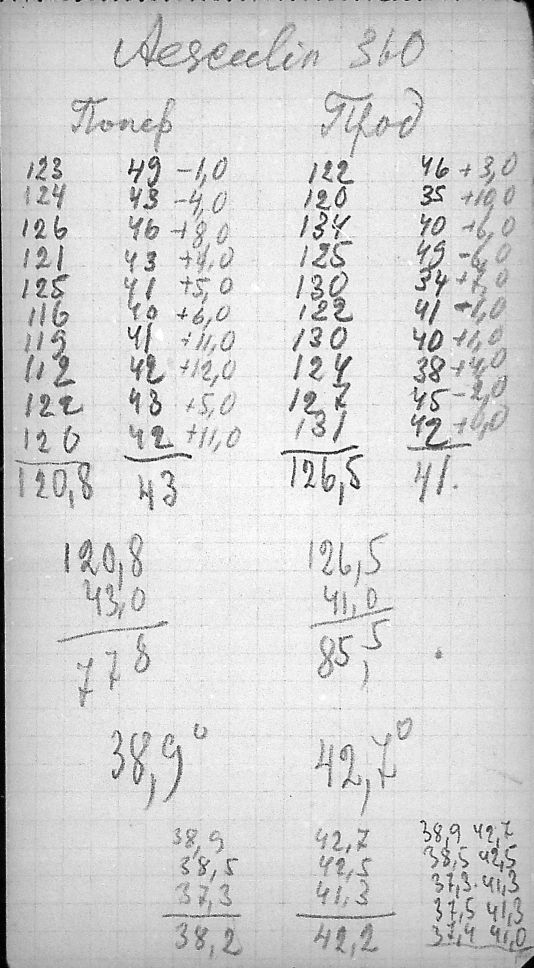 Aesculin 360
Попер Прод
123 49 -1,0 122 46 +3,0
124 43 -4,0 120 35 +10,0
126 46 +8,0 134 40 +6,0
121 43 +4,0 125 49 -6,0
125 41 +5,0 130 34 +7,0
116 40 +6,0 122 41 +1,0
119 41 +11,0 130 40 +1,0
112 42 +12,0 124 38 +4,0
122 43 +5,0 127 45 -2,0
120 42 +11,0 131 42 +0,0
120,8 43 126,5 41.
120,8 126,5
43,0 41,0
77 8 85,5
38,9° 42,7°
38,9 42,7 38,9 42,7
38,5 42,5 38,5 42,5
37,3 41,3 37,3 41,3
38,2 42,2 37,5 41,3
37,4 41,0